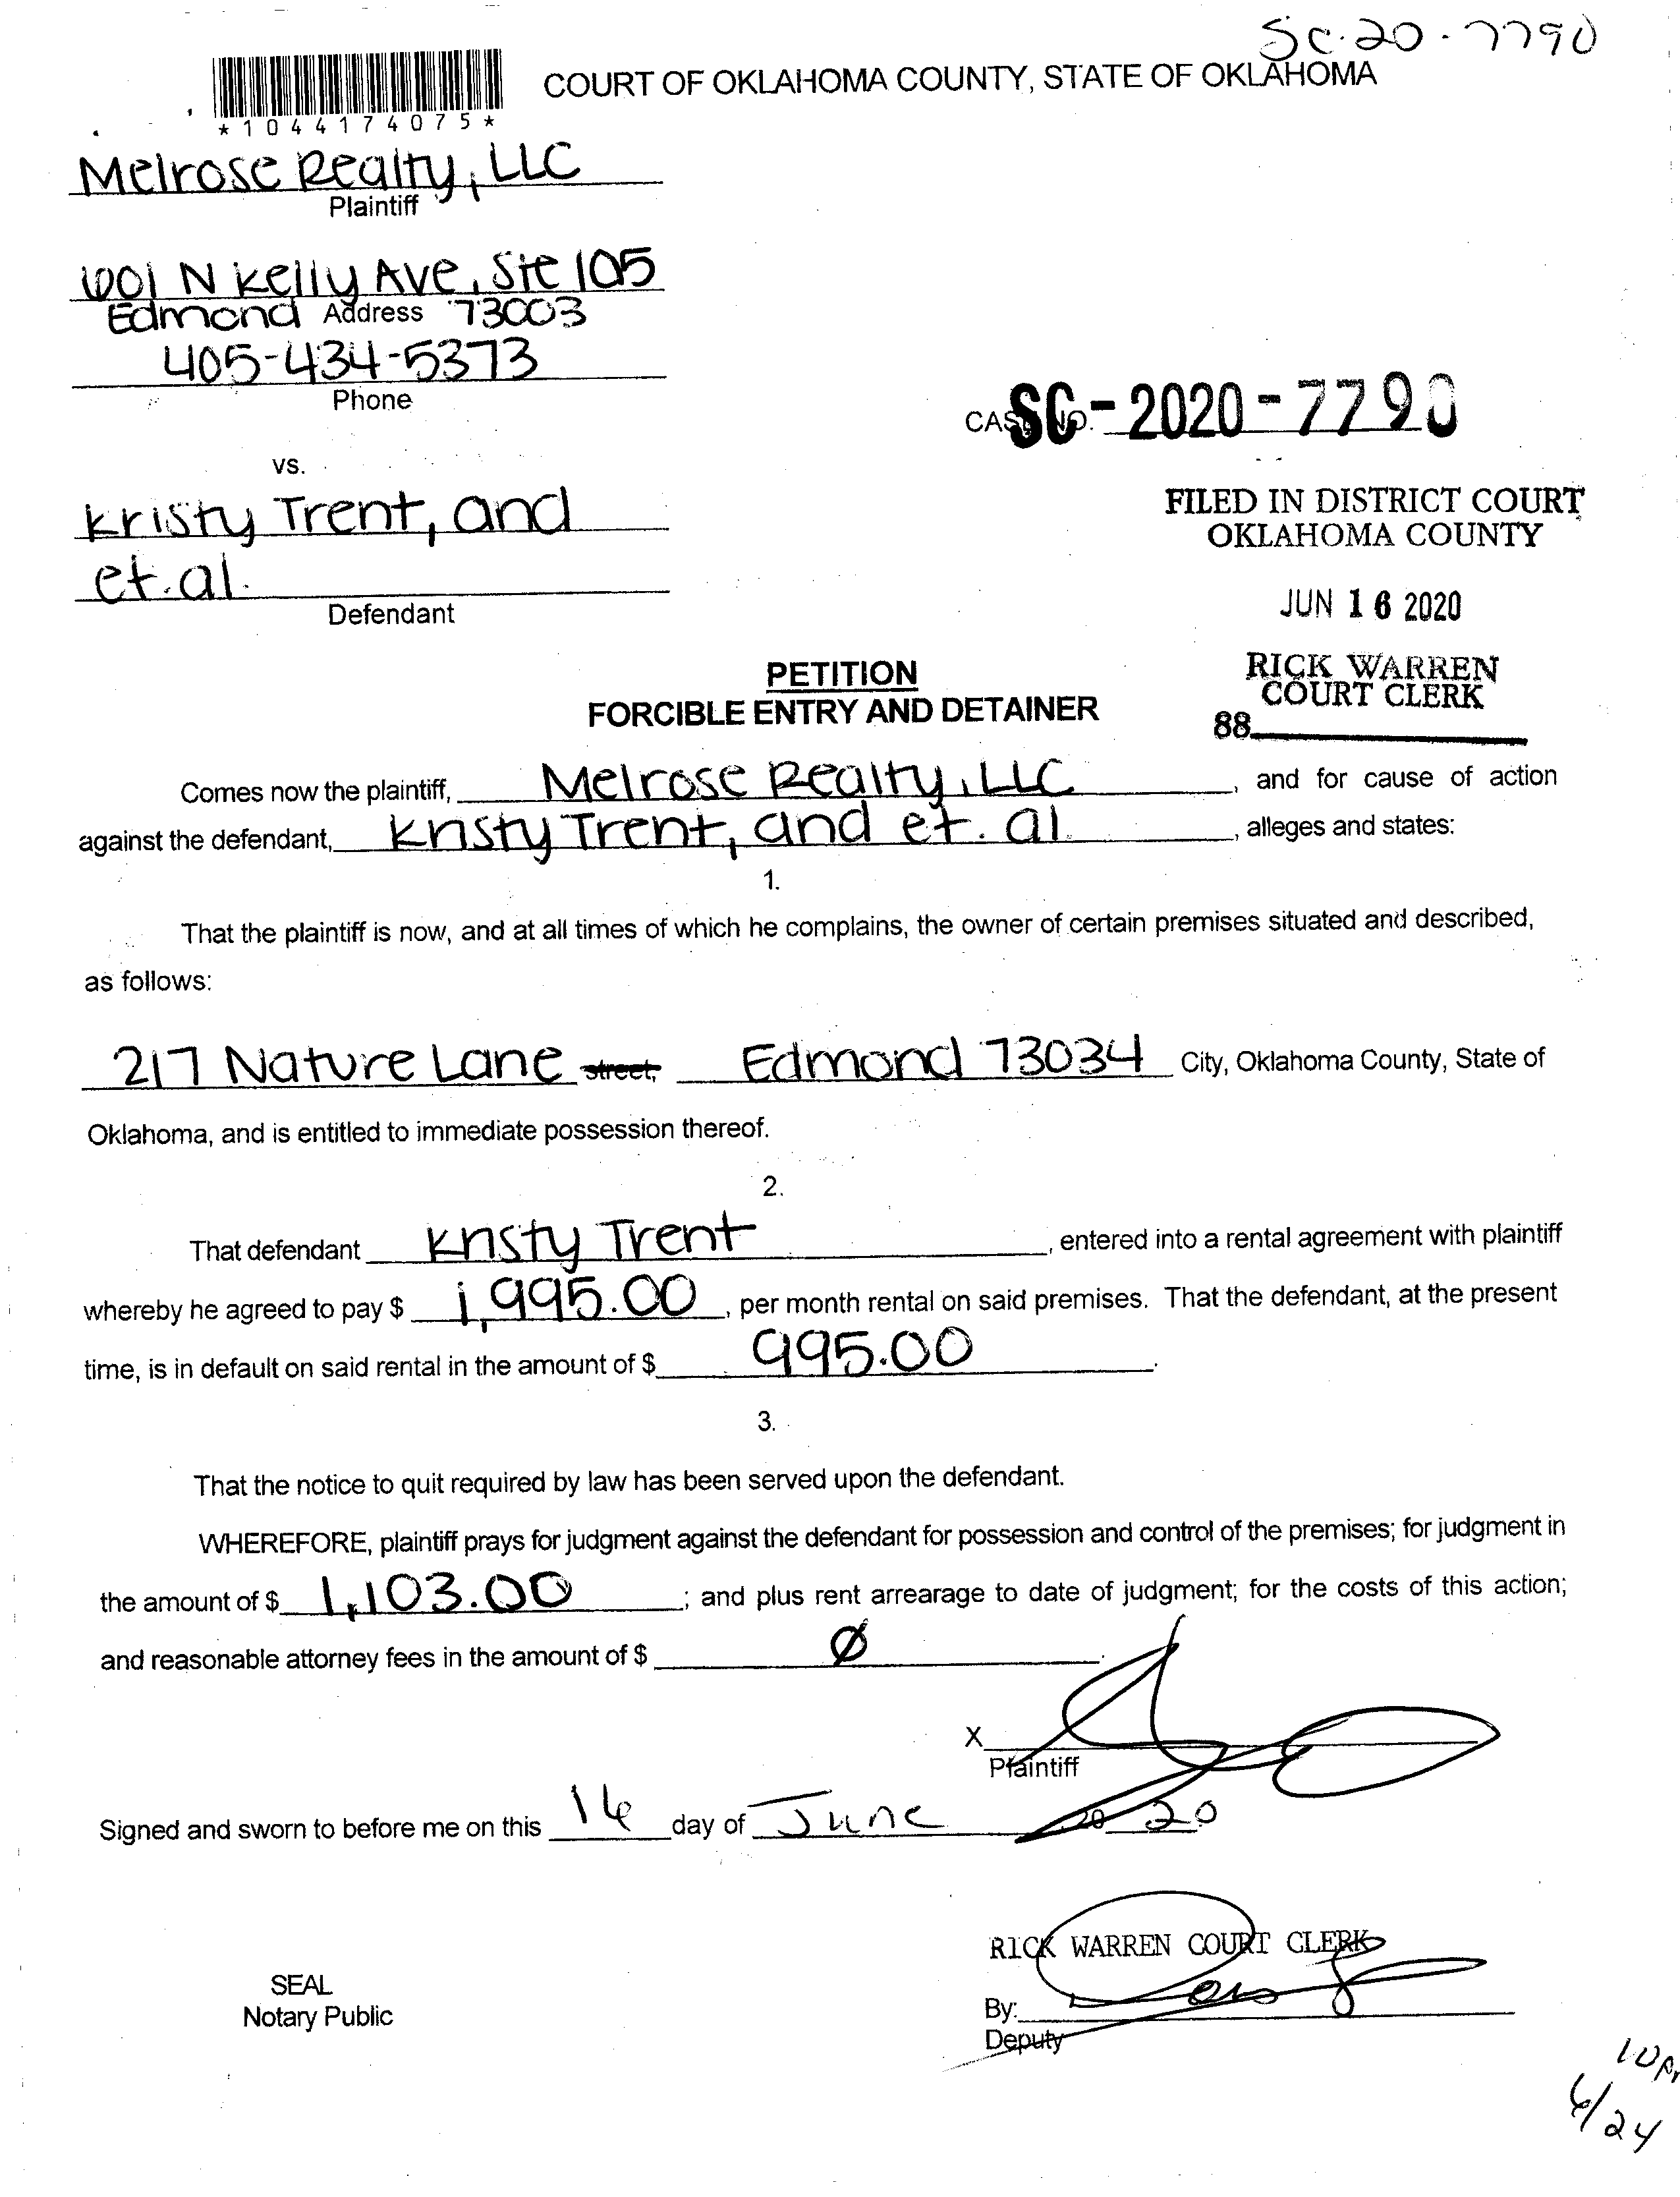 SC-20-7790
COURT OF OKLAHOMA COUNTY, STATE OF OKLAHOMA
*1044174075*
Melrose Realty, LLC
Plaintiff
1001 N Kelly Ave, Ste 105
Edmond Address 73003
405-434-5373
Phone
CASE NO. SC-2020-7790
vs.
Kristy Trent, and
et. al.
Defendant
FILED IN DISTRICT COURT
OKLAHOMA COUNTY
JUN 16 2020
RICK WARREN
COURT CLERK
88
PETITION
FORCIBLE ENTRY AND DETAINER
Comes now the plaintiff, Melrose Realty, LLC, and for cause of action
against the defendant, Kristy Trent, and et. al, alleges and states:
1.
That the plaintiff is now, and at all times of which he complains, the owner of certain premises situated and described,
as follows:
217 Nature Lane street, Edmond 73034 City, Oklahoma County, State of
Oklahoma, and is entitled to immediate possession thereof.
2.
That defendant Kristy Trent, entered into a rental agreement with plaintiff
whereby he agreed to pay $ 1,995.00, per month rental on said premises. That the defendant, at the present
time, is in default on said rental in the amount of $ 995.00.
3.
That the notice to quit required by law has been served upon the defendant.
WHEREFORE, plaintiff prays for judgment against the defendant for possession and control of the premises; for judgment in
the amount of $ 1,103.00; and plus rent arrearage to date of judgment; for the costs of this action;
and reasonable attorney fees in the amount of $ Ø.
X
Plaintiff
Signed and sworn to before me on this 16 day of June 2020
RICK WARREN COURT CLERK
SEAL
Notary Public
By:
Deputy
6/24